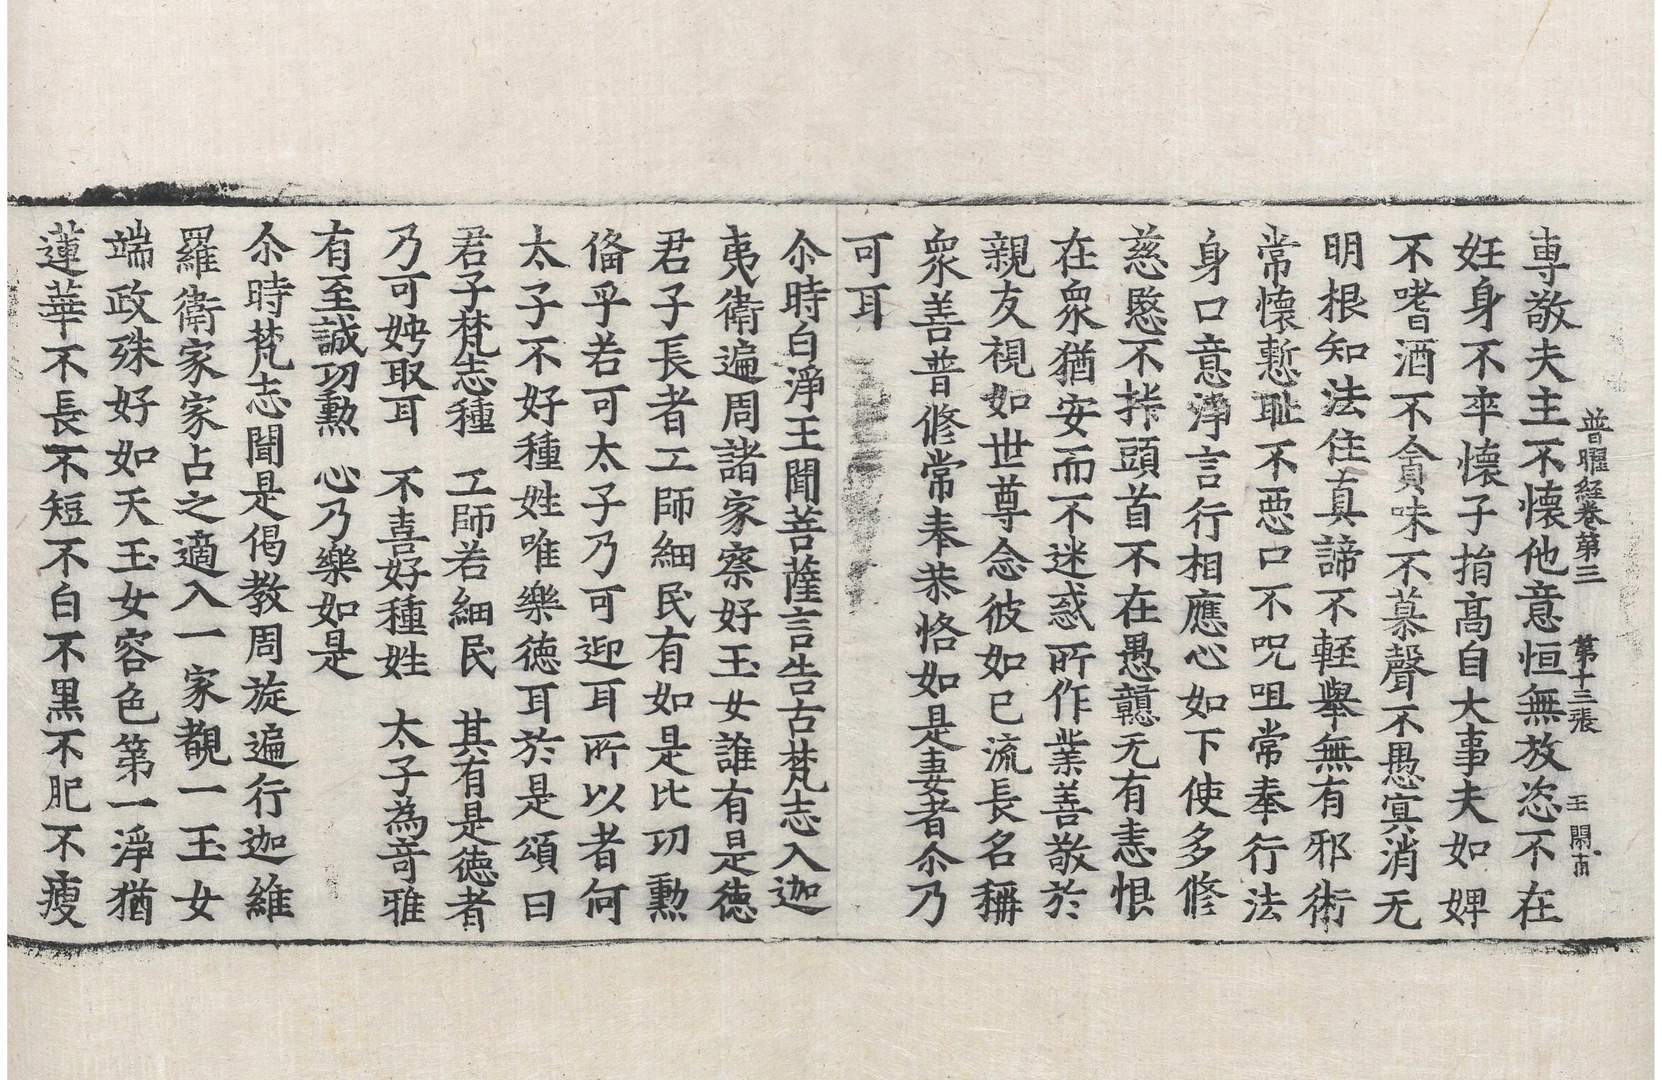 普曜経卷第三 第十三張 王 開甫
専敬夫主不懷他意恒無放恣不在
妊身不卒懷子㨖髙自大事夫如婢
不嗜酒不貪味不慕聲不愚㝠消无
明根知法住真諦不輊舉無有邪術
常懷慙耻不惡口不呪咀常奉行法
身口意淨言行相應心如下使多修
慈愍不掑頭首不在愚戇无有恚恨
在衆猶安而不迷惑所作業善敬於
親友視如世尊念彼如已流長名稱
衆善普修常奉恭恪如是妻者尒乃
可耳
尒時白淨王聞菩薩言告古梵志入迦
夷衛遍周諸家察好玉女誰有是徳
君子長者工師細民有如是比功勲
俻乎若可太子乃可迎耳所以者何
太子不好種姓唯樂徳耳於是頌曰
君子梵志種 工師若細民 其有是徳者
乃可娉取耳 不喜好種姓 太子為竒雅
有至誠功勲 心乃樂如是
尒時梵志聞是偈教周旋遍行迦維
羅衛家家占之適入一家覩一玉女
端政殊好如天玉女容色第一淨猶
蓮華不長不短不白不黒不肥不瘦